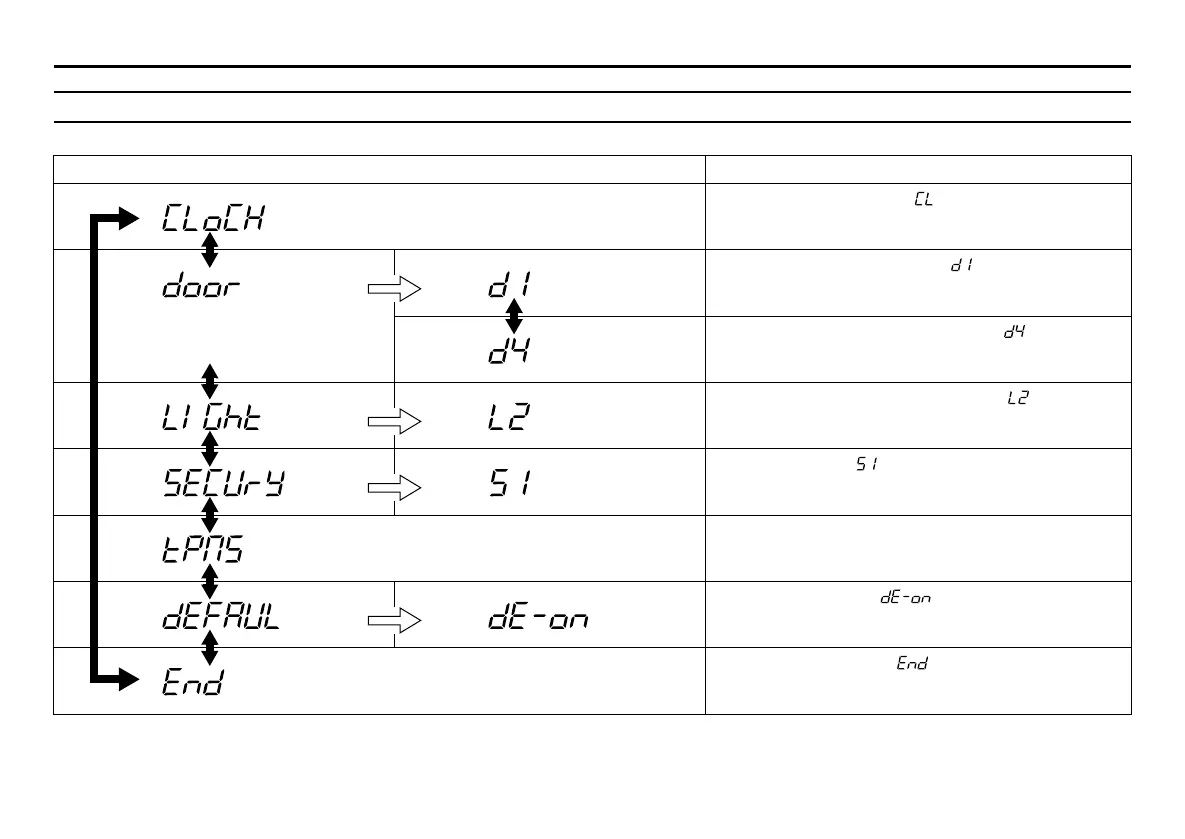 CLoCH CL
door d1 d1
d4 d4
LIGht L2 L2
SECUrY S1 S1
tPMS
dEFAUL dE-on dE-on
End End